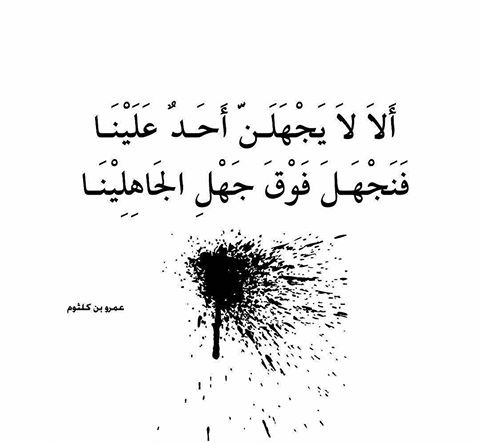 أَلاَ لاَ يَجْهَلَـنّ أَحَـدٌ عَلَيْنَـا
فَنَجْهَـلَ فَوْقَ جَهْلِ الجَاهِلِيْنَـا
عمرو بن كلثوم